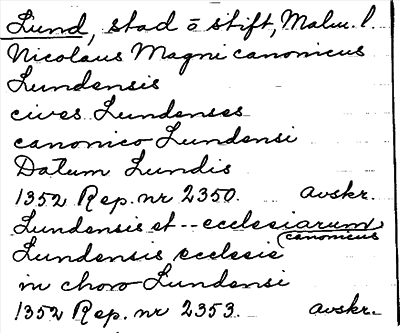 Lund, stad o stift, Malm. l.
Nicolaus Magni canonicus
Lundensis
cives Lundenses
canonico Lundensi
Datum Lundis
1352 Rep. nr 2350. avskr.
Lundensis et -- ecclesiarum
canonicus
Lundensis ecclesie
in choro Lundensi
1352 Rep. nr 2353. avskr.